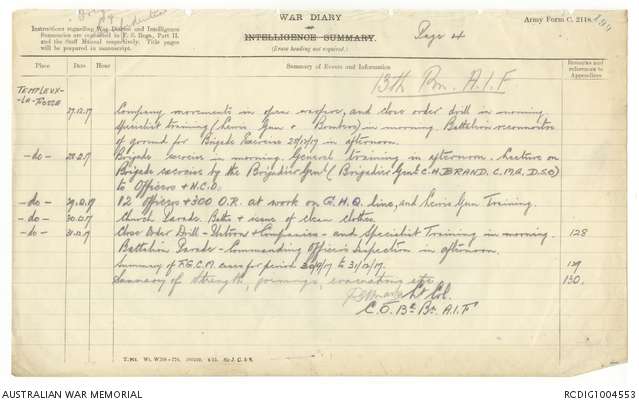 WAR DIARY
OF
INTELLIGENCE SUMMARY.
(Erase heading not required).
Army Form C. 2118.
Page 4
Instructions regarding War Diaries and Intelligence
Summaries are contained in F. S. Regs., Part II.
and the Staff Manual respectively. Title pages
will be prepared in manuscript.
Place Date Hour Summary of Events and Information Remarks and references to Appendices
13th Bn. A.I.F
TEMPLEUX-
LA-FOSSE
27.12.17 Company movements in open warfare, and close order drill in morning
Specialist training (Lewis Gun & Bombers) in morning. Battalion reconnoitre
of ground for Brigade Exercise 28/12/17 in afternoon.
-do- 28.12.17 Brigade exercise in morning. General training in afternoon. Lecture on
Brigade exercise by the Brigadier Genl (Brigadier Genl C.H. BRAND. C.M.G, D.S.O)
to Officers & N.C.O.
-do- 29.12.17 12 officers + 300 O.R. at work on G.H.Q line, and Lewis Gun Training.
-do- 30.12.17 Church Parade. Baths & issue of clean clothes.
-do- 31.12.17 Close Order Drill - Platoons & Companies - and Specialist Training in morning. 128
Battalion Parade - Commanding Officer's Inspection in afternoon.
Summary of F.G.C.M. cases for period to 31/12/17. 129
Summary of strength, evacuating etc 130.
Lt Col.
C.O. 13th Bn. A.I.F
AUSTRALIAN WAR MEMORIAL
RCDIG1004553